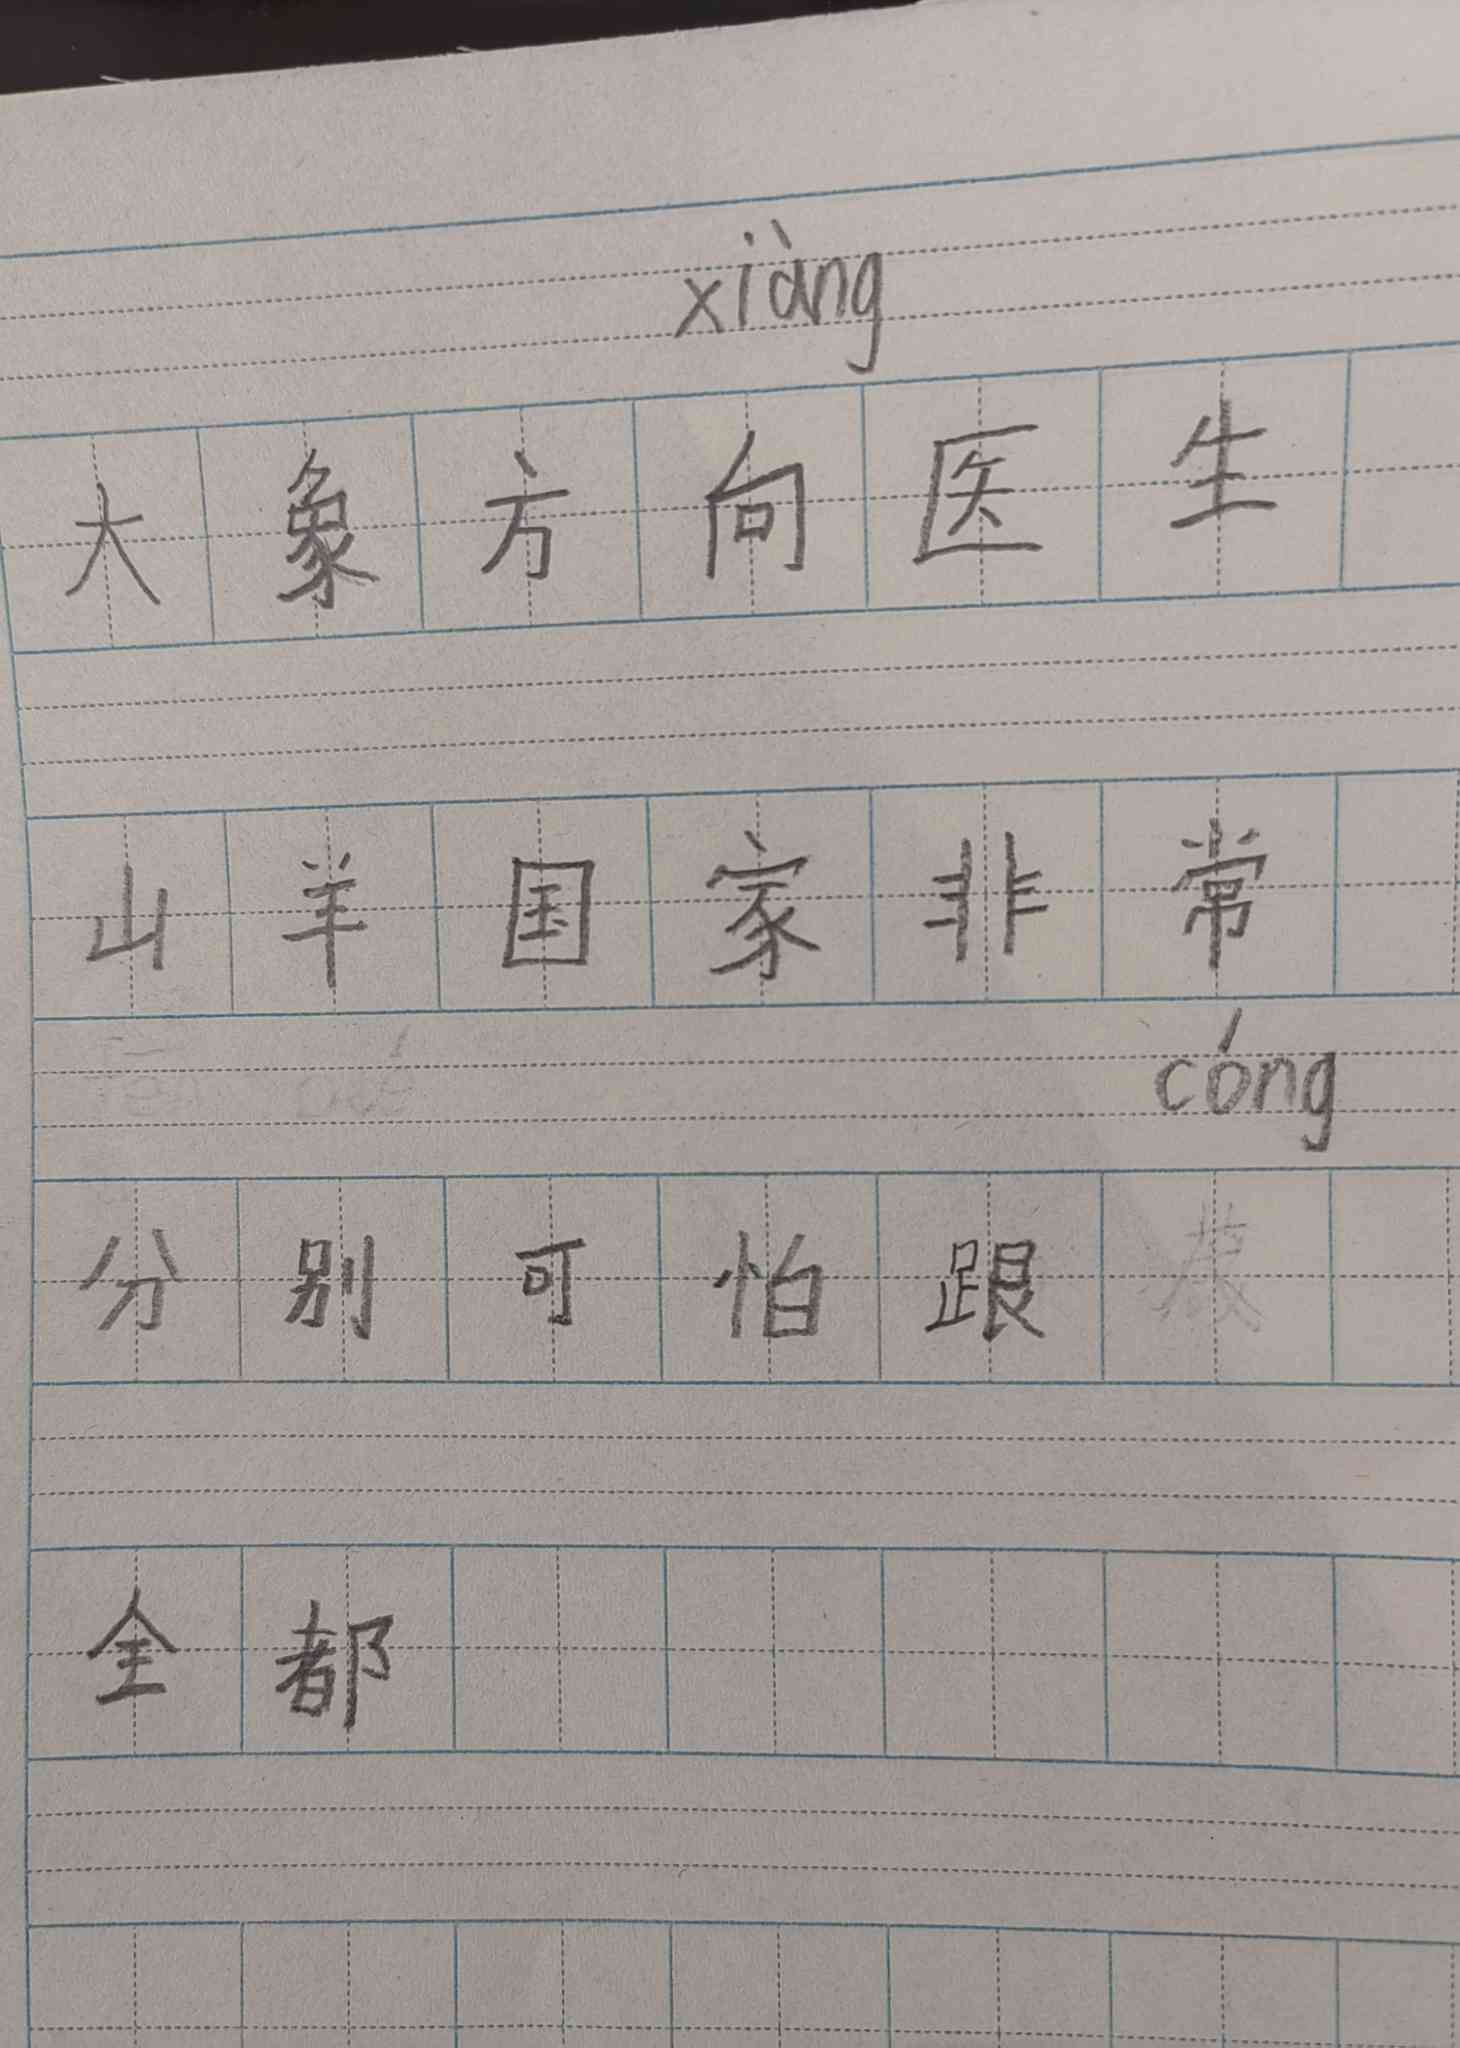 xiàng
大象方向医生
山羊国家非常
cóng
分别可怕跟
全都